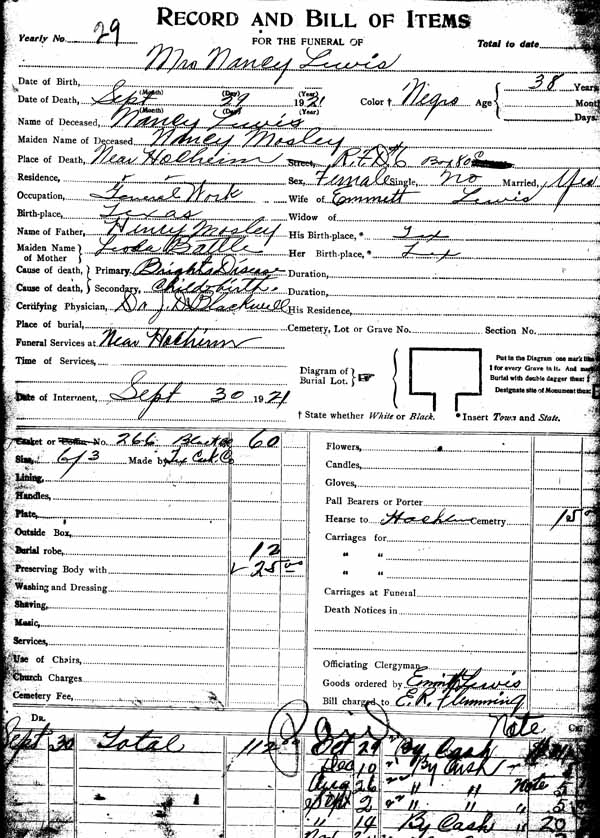 RECORD AND BILL OF ITEMS
Yearly No. 29 FOR THE FUNERAL OF Total to date
Mrs Nancy Lewis
Date of Birth, (Month) (Day) (Year) 38 Years
Date of Death, Sept 29 1921 Color † Negro Age Months
(Month) (Day) (Year) Days.
Name of Deceased, Nancy Lewis
Maiden Name of Deceased, Nancy Mosley
Place of Death, Near Hocheim Street, R.F.D. #6 Box 80
Residence, " " Sex, Female Single, No Married, Yes
Occupation, General Work Wife of Emmett Lewis
Birth-place, Texas Widow of
Name of Father, Henry Mosley His Birth-place, * Tex
Maiden Name of Mother Battle Her Birth-place, * Tex
Cause of death, Primary, Brights Disease Duration,
Cause of death, Secondary, Childbirth Duration,
Certifying Physician, Dr J. D. Blackwell His Residence,
Place of burial, Cemetery, Lot or Grave No. Section No.
Funeral Services at Near Hocheim
Time of Services,
Diagram of Burial Lot.
Put in the Diagram one mark like
1 for every Grave in it. And mark
Burial with double dagger thus: ‡
Designate site of Monument thus:
Date of Interment, Sept 30 1921
† State whether White or Black. * Insert Town and State.
Casket or Coffin No. 266 Black 60
Size, 6/3 Made by Tex Cask Co
Lining,
Handles,
Plate,
Outside Box,
Burial robe, 12
Preserving Body with 25 00
Washing and Dressing
Shaving,
Music,
Services,
Use of Chairs,
Church Charges
Cemetery Fee,
Flowers,
Candles,
Gloves,
Pall Bearers or Porter
Hearse to Cemetry 15
Carriages for
" "
" "
Carriages at Funeral
Death Notices in
Officiating Clergyman
Goods ordered by Emmit Lewis
Bill charged to E. R. Flemming
DR. Paid Note
Sept 30 Total 112 Oct 29 By Cash
Dec 10 " By Cash
Aug 26 " " " Note 5
Sept 2 " " " 5
" 14 By Cash 20
Nov